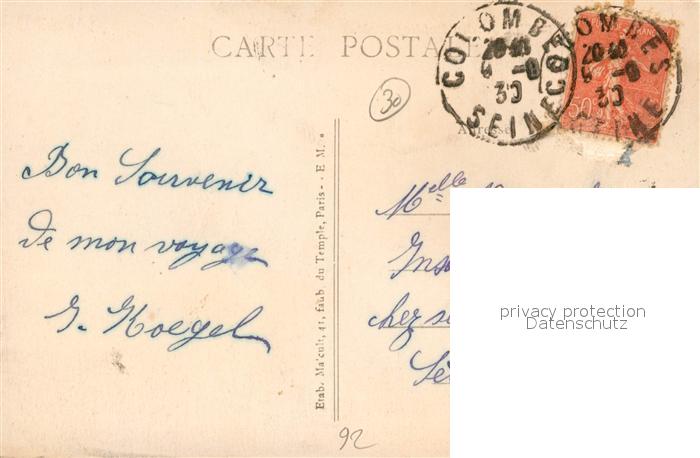 CARTE POSTALE
COLOMBES
20 40
30
SEINE
COLOMBES
20 40
30
SEINE
50
30
Adresse
Bon Souvenir
de mon voyage
Melle
chez
Etab. Malcuit, 41, faub. du Temple, Paris - E. M.
92
privacy protection
Datenschutz